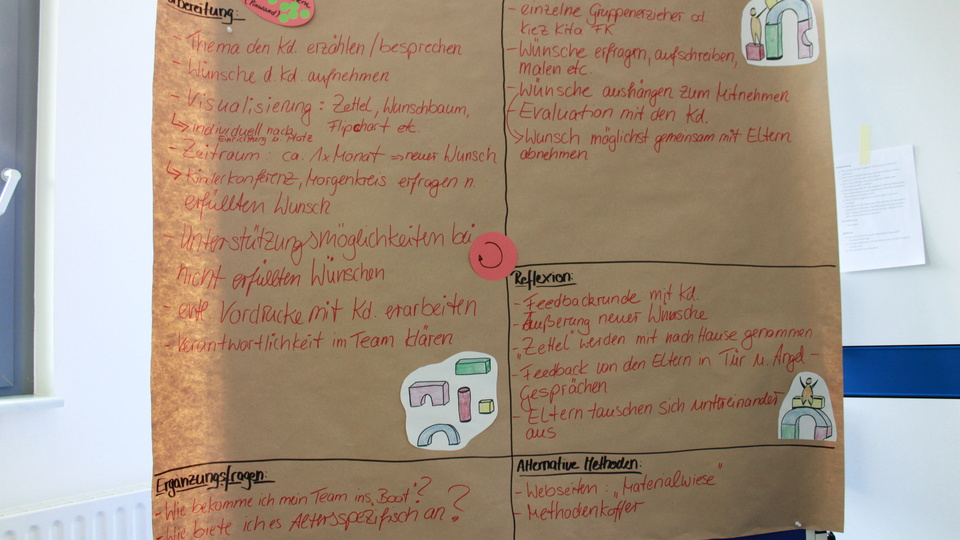 bereitung:
(Pinnwand)
- Thema den Kd. erzählen / besprechen
- Wünsche d. Kd aufnehmen
- Visualisierung: Zettel, Wunschbaum,
Flipchart etc.
↳ individuell nach
Einrichtung u. Platz
- Zeitraum: ca. 1x Monat ⇒ neuer Wunsch
↳ Kinderkonferenz, Morgenkreis erfragen n.
erfüllten Wunsch
- Unterstützungsmöglichkeiten bei
nicht erfüllten Wünschen
- evt. Vordrucke mit Kd. erarbeiten
- Verantwortlichkeit im Team klären
Ergänzungsfragen:
- Wie bekomme ich mein Team ins „Boot"?
- Wie biete ich es Altersspezifisch an?
- einzelne Gruppenerzieher od.
Kiez Kita FK
- Wünsche erfragen, aufschreiben,
malen etc.
- Wünsche aushängen zum Mitnehmen
- Evaluation mit den Kd.
↳ Wunsch möglichst gemeinsam mit Eltern
abnehmen
Reflexion:
- Feedbackrunde mit Kd.
- Äußerung neuer Wünsche
- „Zettel" werden mit nach Hause genommen
- Feedback von den Eltern in Tür u. Angel -
Gesprächen
- Eltern tauschen sich untereinander
aus
Alternative Methoden:
- Webseiten: „Materialwiese"
- Methodenkoffer